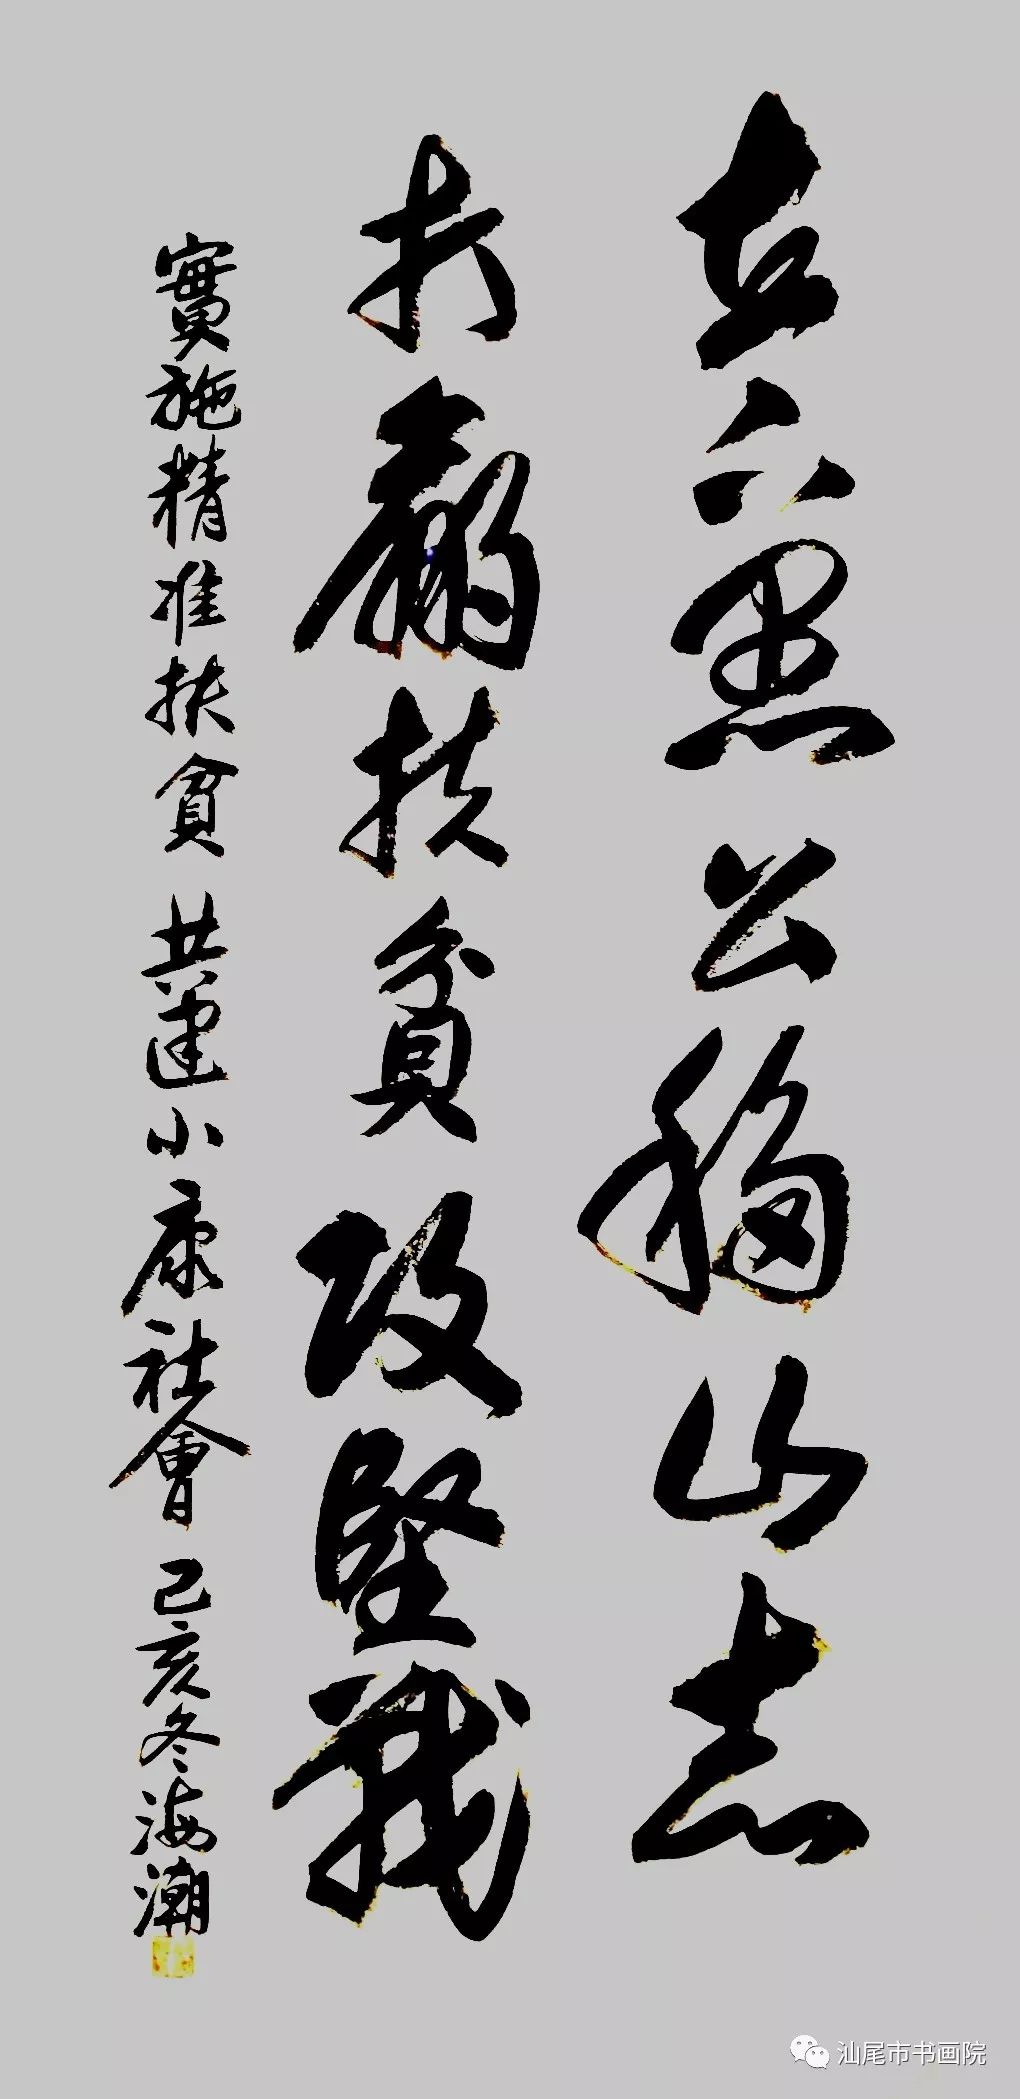 立下愚公移山志
打贏扶貧攻堅戰
實施精准扶貧 共建小康社會 己亥冬海潮
汕尾市书画院